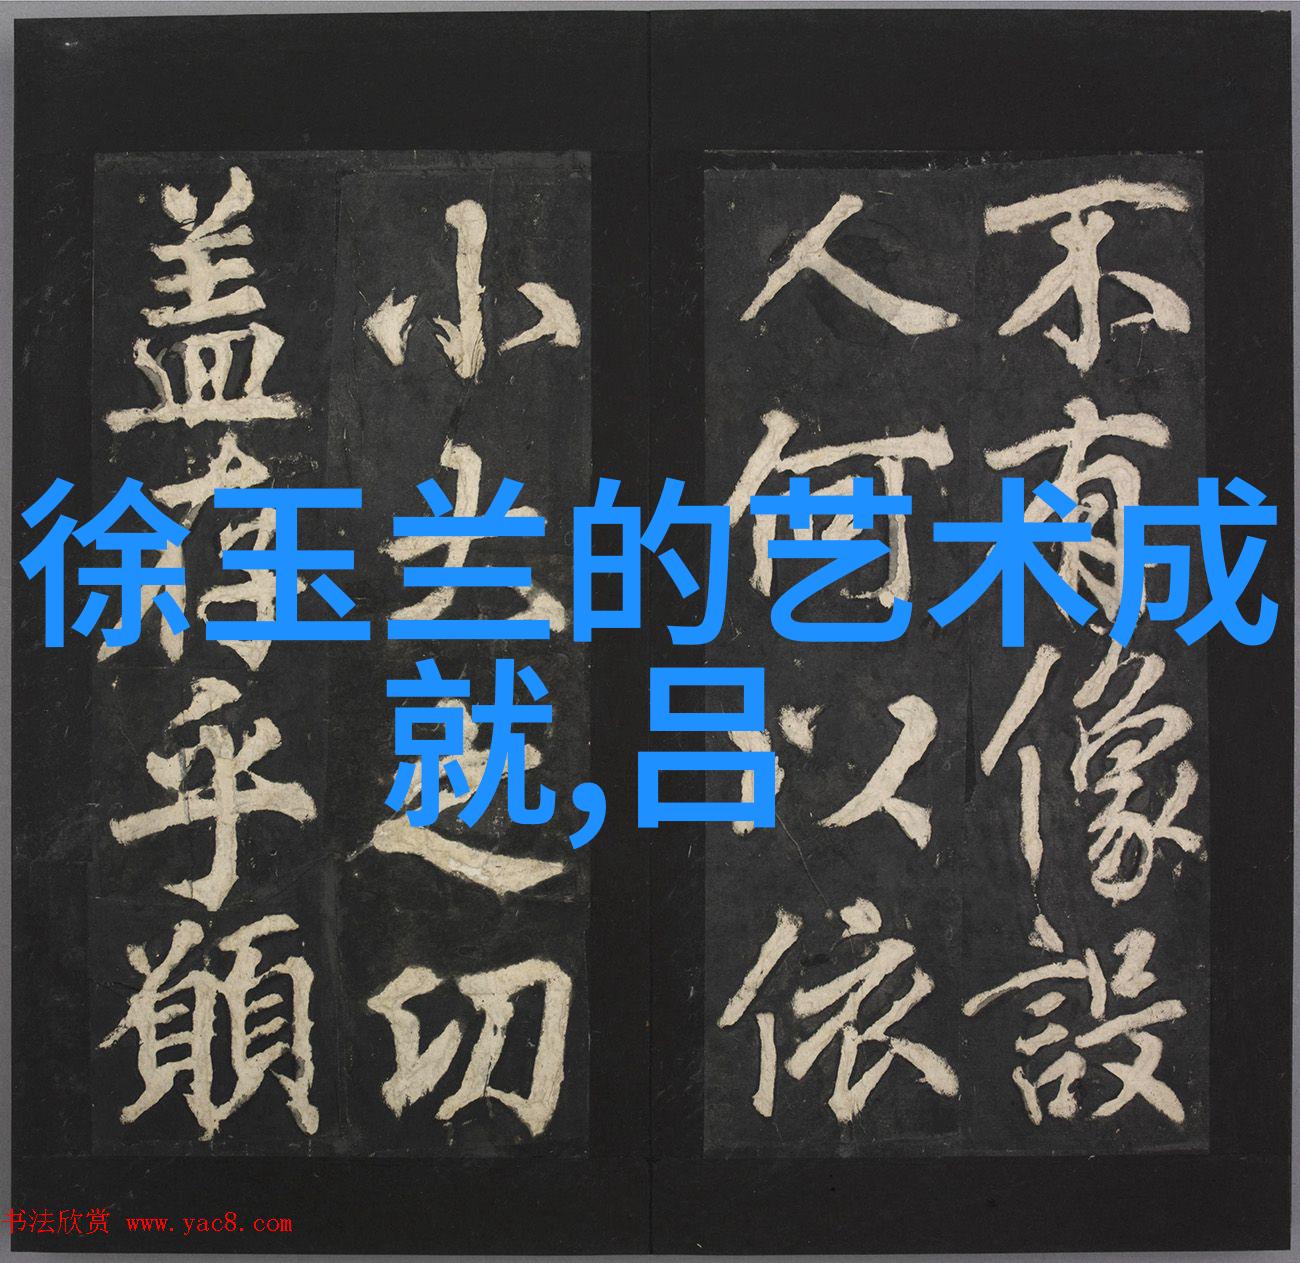 不有像設
人何以依
小大之切
盖存乎願
徐玉兰的艺术成
就,吕
书法欣赏 www.yac8.com